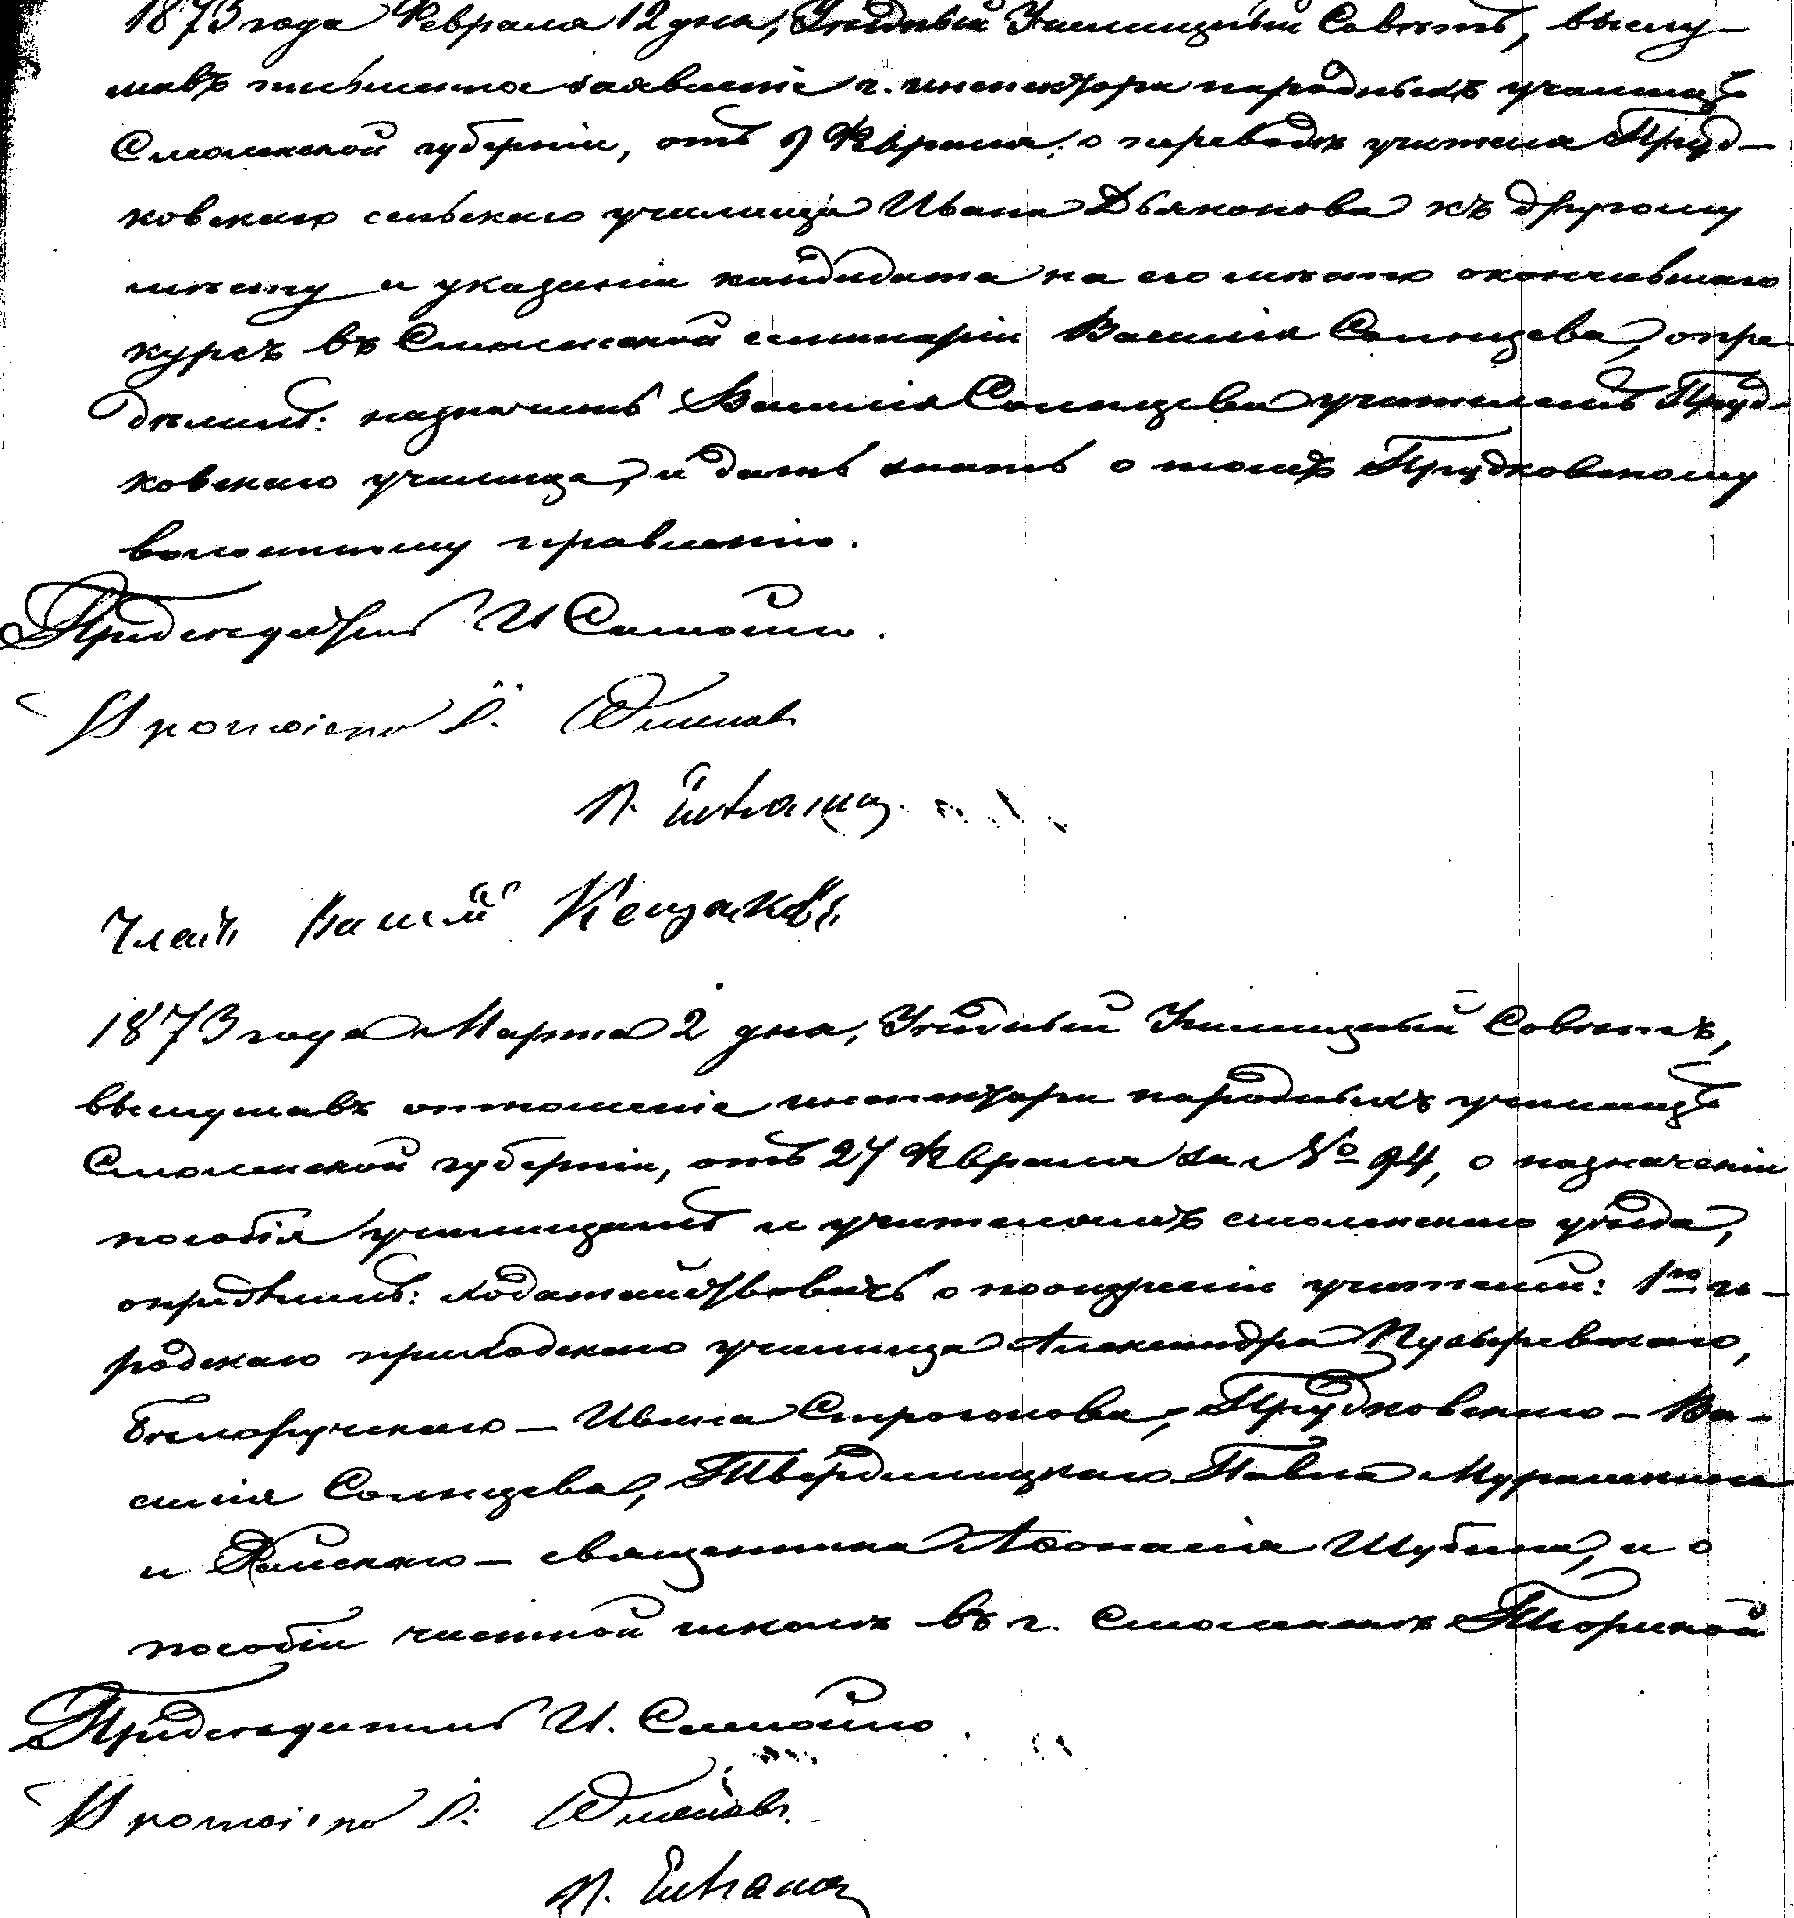 1873 года Февраля 12 дня, Уѣздный Училищный Совѣтъ, выслу-
шавъ письменное заявленіе г. инспектора народныхъ училищъ
Смоленской губерніи, отъ 9 Февраля, о переводѣ учителя Пруд-
ковскаго сельскаго училища Ивана Дьяконова къ другому
мѣсту и указаніи кандидата на его мѣсто окончившаго
курсъ въ Смоленской семинаріи Василія Солнцева, опре-
дѣлилъ: назначить Василія Солнцева учителемъ Пруд-
ковскаго училища, и дать знать о томъ Прудковскому
волостному правленію.
Предсѣдатель И Самойло.
Протоіерей П.
П.
Членъ Василій
1873 года Марта 2 дня, Уѣздный Училищный Совѣтъ,
выслушавъ отношеніе инспектора народныхъ училищъ
Смоленской губерніи, отъ 27 Февраля за № 94, о назначеніи
пособія училищамъ и учителямъ смоленскаго уѣзда,
опредѣлилъ: ходатайствовать о поощреніи учителей: 1го го-
родскаго приходскаго училища Александра Пузыревскаго,
Бѣлоручскаго – Ивана Строгонова, Прудковскаго – Ва-
силія Солнцева, Твердилицкаго Павла Мурашкина
и – священника Аѳонасія Шубина, и о
пособіи частной школѣ въ г. Смоленскѣ
Предсѣдатель И. Самойло
Протоіерей П.
П.